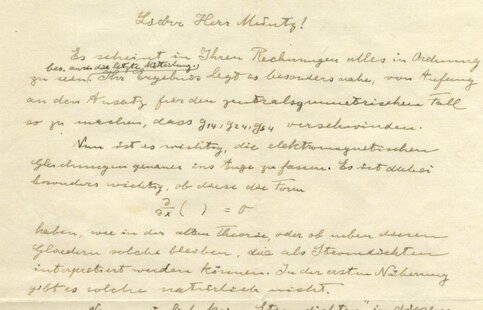 Lieber Herr Müntz!
Es scheint in Ihren Rechnungen alles in Ordnung
bes. auch die letzte Mitteilung.
zu sein. Ihr Ergebnis legt es besonders nahe, von Anfang
an den Ansatz für den zentralsymmetrischen Fall
so zu machen, dass g₁₄, g₂₄, g₃₄ verschwinden.
Nun ist es wichtig, die elektromagnetischen
Gleichungen genauer ins Auge zu fassen. Es ist dabei
besonders wichtig, ob diese die Form
∂/∂x ( ) = 0
haben, wie in der alten Theorie, oder ob neben diesen
Gliedern solche bleiben, die als Stromdichten
interpretiert werden können. In der ersten Näherung
gibt es solche natürlich nicht.